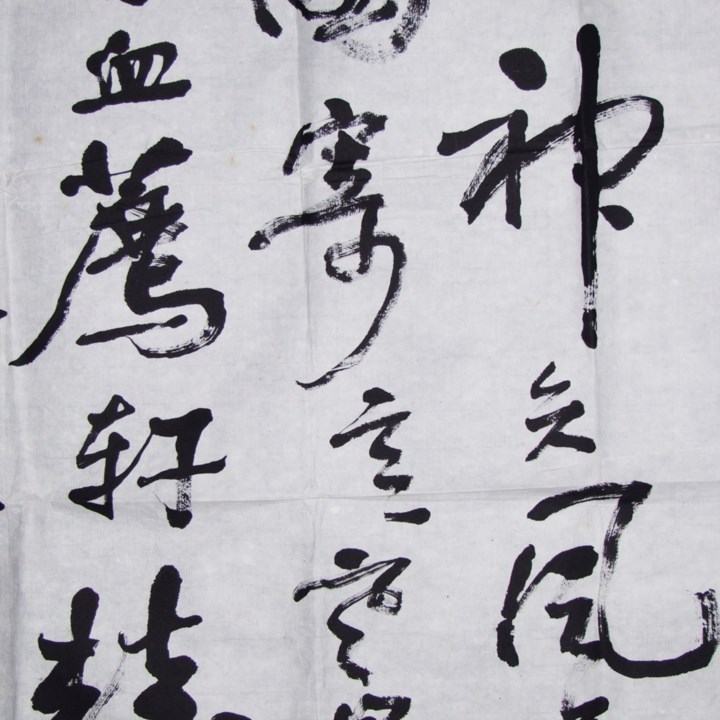 神矢风
寄意寒
血薦轩